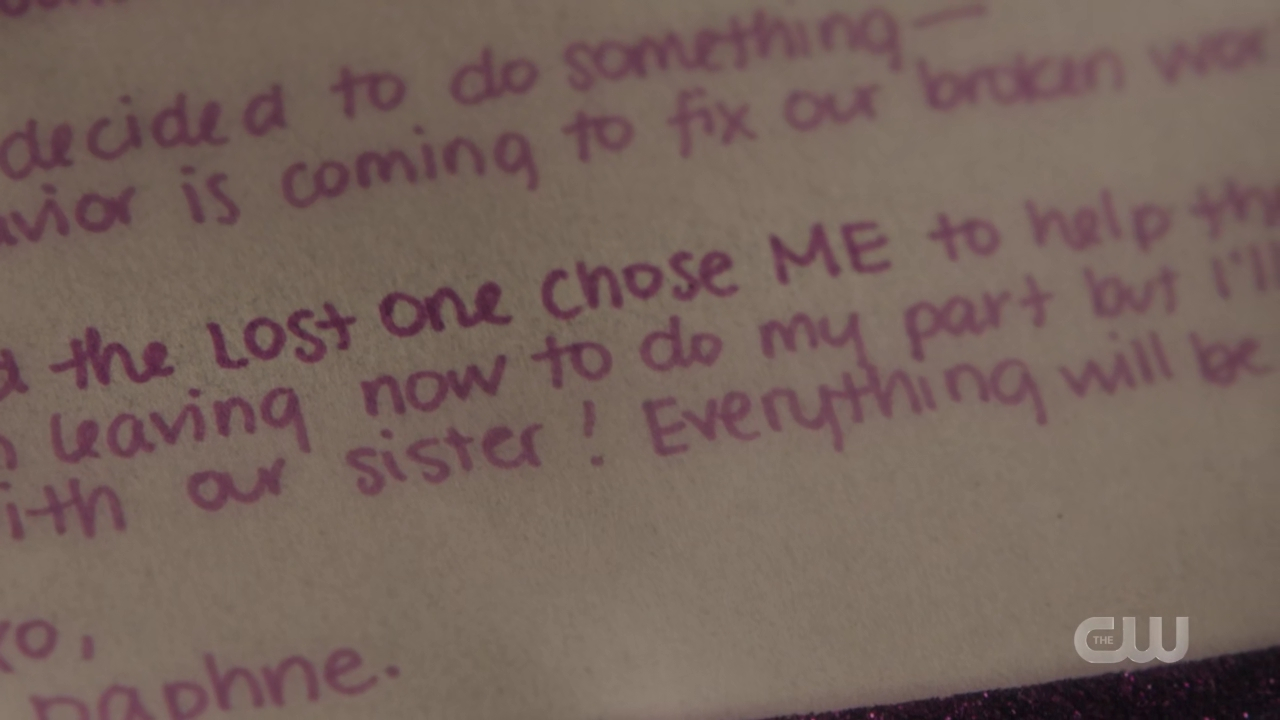 decided to do something—
avior is coming to fix our broken wor
the Lost One chose ME to help the
leaving now to do my part but I'll
ith our sister! Everything will be
xo,
Daphne.
THE CW